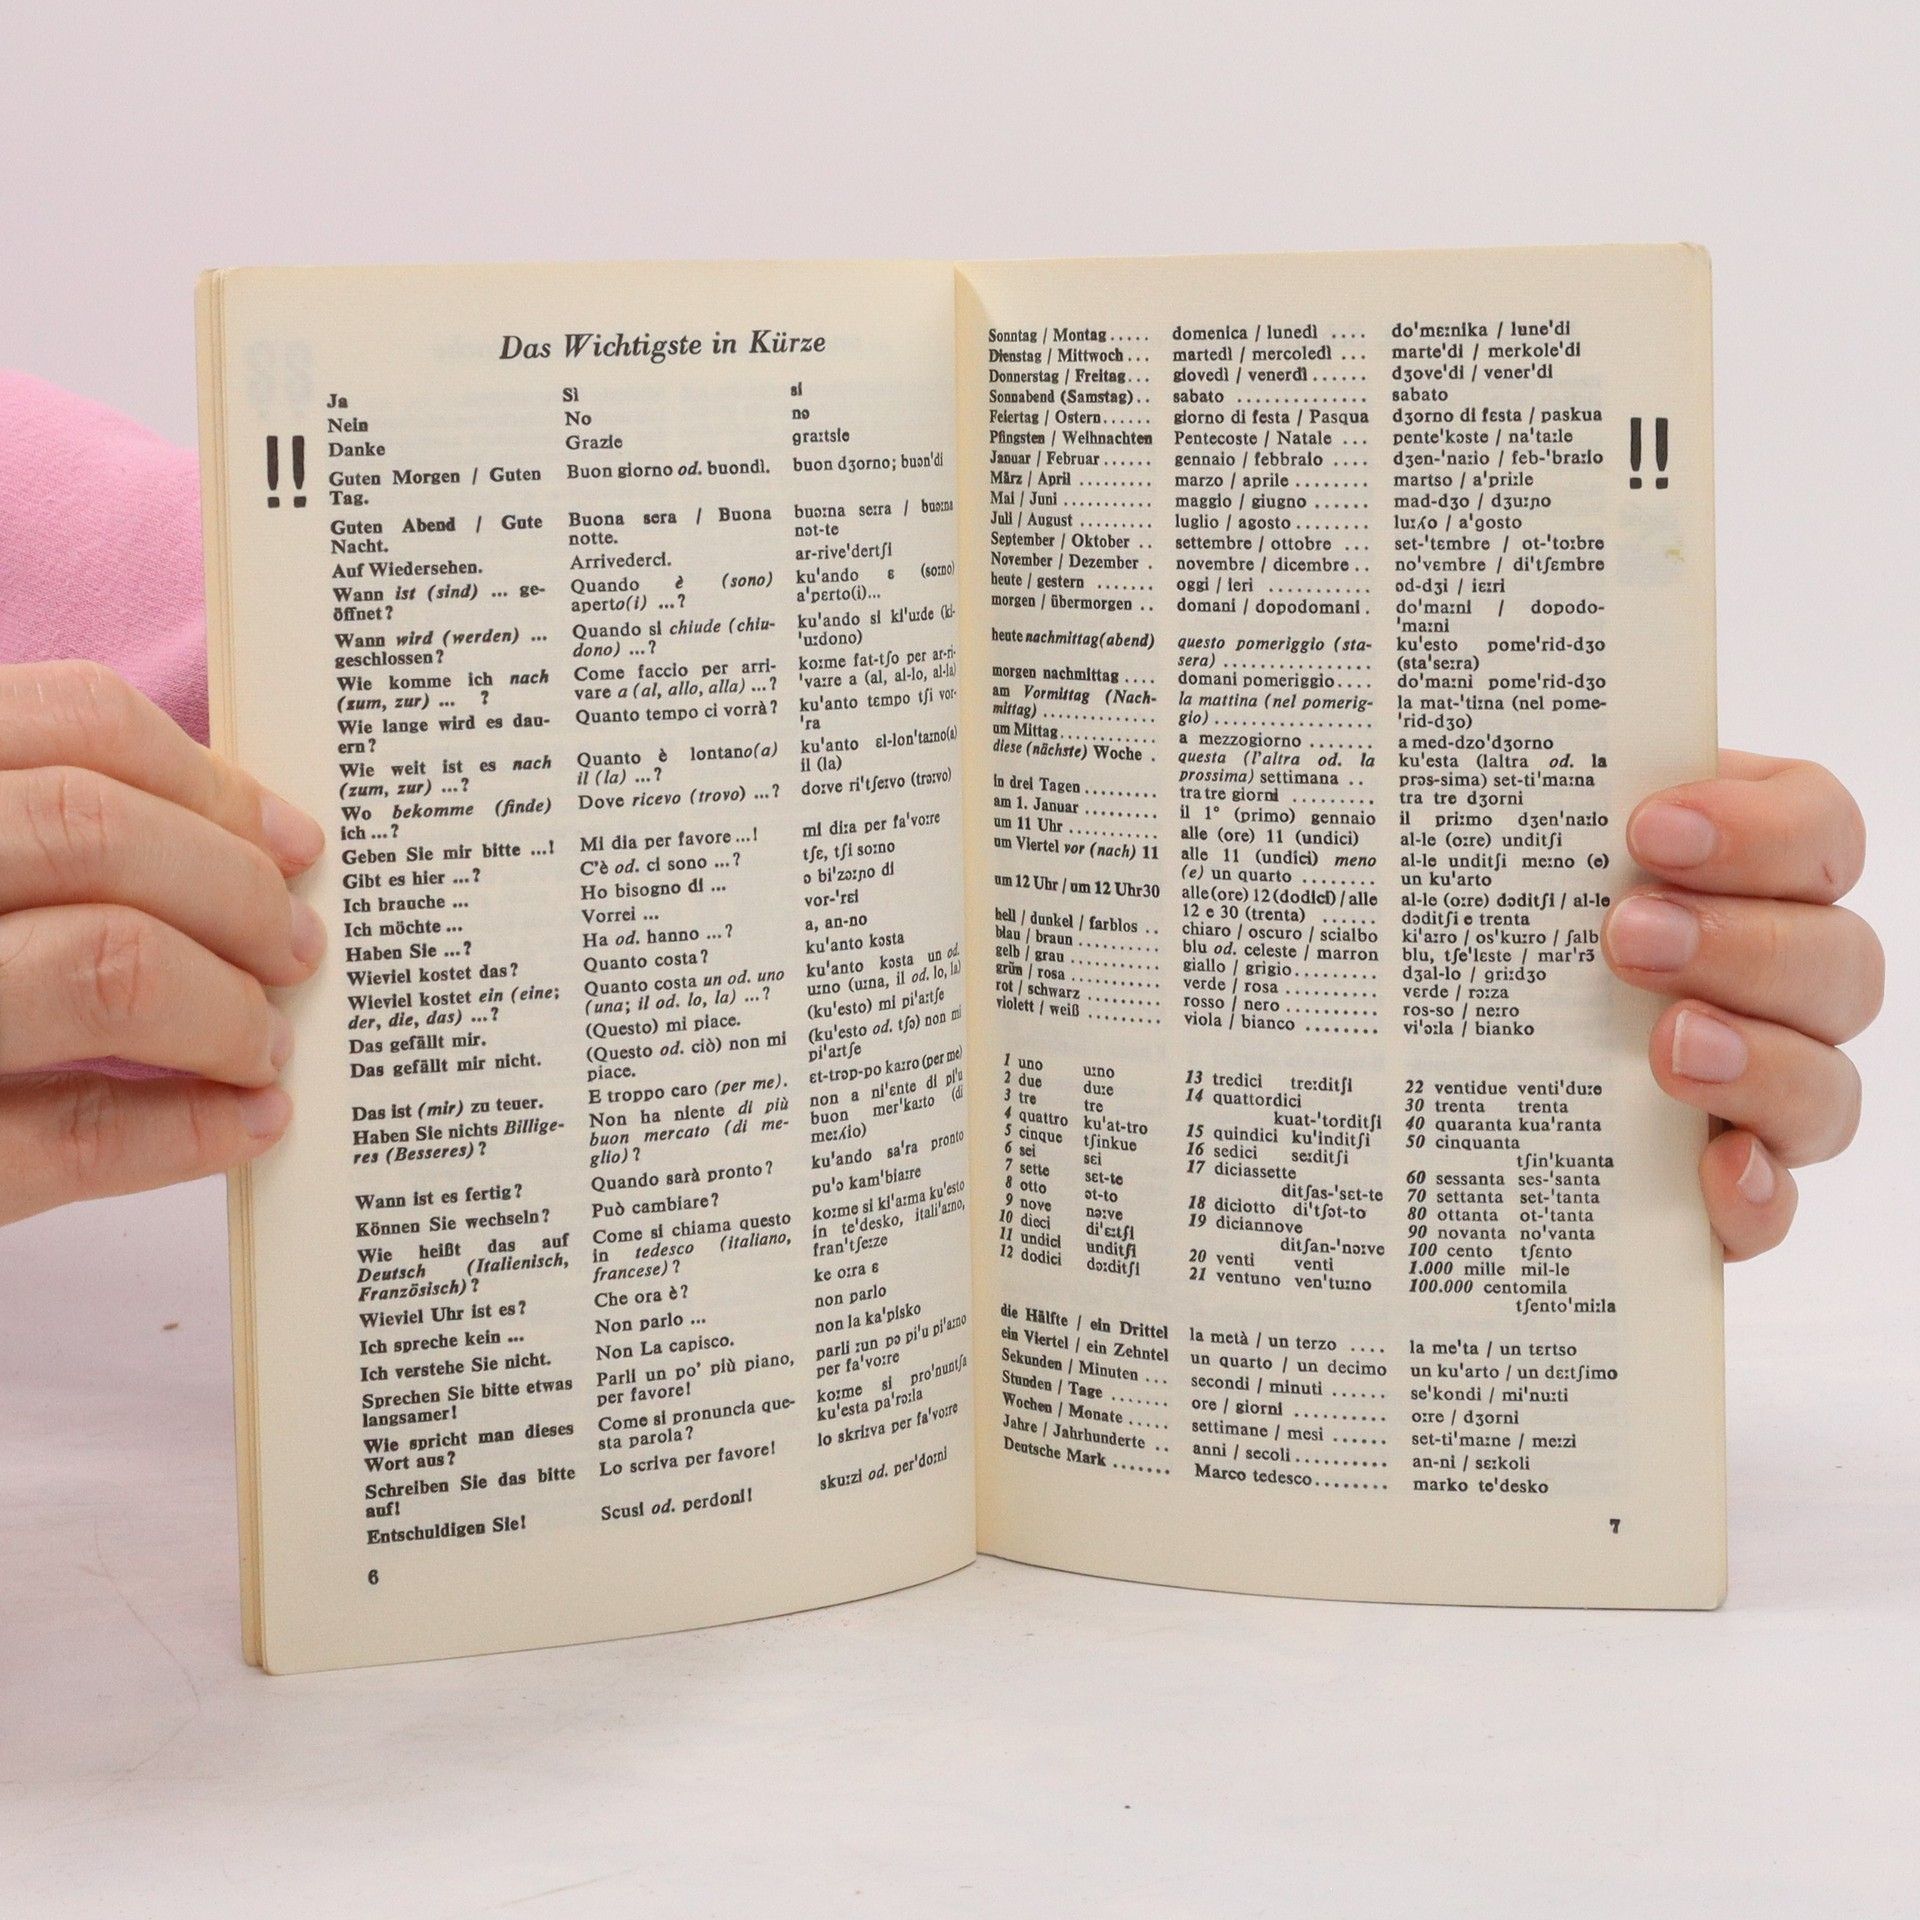 Das Wichtigste in Kürze
!!
Ja Sì si
Nein No nɔ
Danke Grazie graːtsie
Guten Morgen / Guten Buon giorno od. buondì. buon dʒorno; buɔn'di
Tag.
Guten Abend / Gute Buona sera / Buona buɔːna seːra / buɔːna
Nacht. notte. nɔt-te
Auf Wiedersehen. Arrivederci. ar-rive'dertʃi
Wann ist (sind) ... ge- Quando è (sono) ku'ando ɛ (soːno)
öffnet? aperto(i) ...? a'pɛrto(i)...
Wann wird (werden) ... Quando si chiude (chiu- ku'ando si ki'uːde (ki-
geschlossen? dono) ...? 'uːdono)
Wie komme ich nach Come faccio per arri- koːme fat-tʃo per ar-ri-
(zum, zur) ... ? vare a (al, allo, alla) ...? 'vaːre a (al, al-lo, al-la)
Wie lange wird es dau- Quanto tempo ci vorrà? ku'anto tɛmpo tʃi vor-
ern? 'ra
Wie weit ist es nach Quanto è lontano(a) ku'anto ɛl-lon'taːno(a)
(zum, zur) ...? il (la) ...? il (la)
Wo bekomme (finde) Dove ricevo (trovo) ...? doːve ri'tʃeːvo (trɔːvo)
ich ...?
Geben Sie mir bitte ...! Mi dia per favore ...! mi diːa per fa'voːre
Gibt es hier ...? C'è od. ci sono ...? tʃɛ, tʃi soːno
Ich brauche ... Ho bisogno di ... ɔ bi'zɔːɲo di
Ich möchte ... Vorrei ... vor-'rɛi
Haben Sie ...? Ha od. hanno ...? a, an-no
Wieviel kostet das? Quanto costa? ku'anto kɔsta
Wieviel kostet ein (eine; Quanto costa un od. uno ku'anto kɔsta un od.
der, die, das) ...? (una; il od. lo, la) ...? uːno (uːna, il od. lo, la)
Das gefällt mir. (Questo) mi piace. (ku'esto) mi pi'aːtʃe
Das gefällt mir nicht. (Questo od. ciò) non mi (ku'esto od. tʃɔ) non mi
piace. pi'aːtʃe
Das ist (mir) zu teuer. E troppo caro (per me). ɛt-trɔp-po kaːro (per me)
Haben Sie nichts Billige- Non ha niente di più non a ni'ɛnte di pi'u
res (Besseres)? buon mercato (di me- buon mer'kaːto (di
glio)? meːʎio)
Wann ist es fertig? Quando sarà pronto? ku'ando sa'ra pronto
Können Sie wechseln? Può cambiare? pu'ɔ kam'biaːre
Wie heißt das auf Come si chiama questo koːme si ki'aːma ku'esto
Deutsch (Italienisch, in tedesco (italiano, in te'desko, itali'aːno,
Französisch)? francese)? fran'tʃeːze
Wieviel Uhr ist es? Che ora è? ke oːra ɛ
Ich spreche kein ... Non parlo ... non parlo
Ich verstehe Sie nicht. Non La capisco. non la ka'pisko
Sprechen Sie bitte etwas Parli un po' più piano, parli ːun pɔ pi'u pi'aːno
langsamer! per favore! per fa'voːre
Wie spricht man dieses Come si pronuncia que- koːme si pro'nuntʃa
Wort aus? sta parola? ku'esta pa'rɔːla
Schreiben Sie das bitte Lo scriva per favore! lo skriːva per fa'voːre
auf!
Entschuldigen Sie! Scusi od. perdoni! skuːzi od. per'doːni
6
Sonntag / Montag ..... domenica / lunedì .... do'mɛːnika / lune'di
Dienstag / Mittwoch ... martedì / mercoledì ... marte'di / merkole'di
Donnerstag / Freitag... giovedì / venerdì ...... dʒove'di / vener'di
Sonnabend (Samstag).. sabato .............. sabato
Feiertag / Ostern...... giorno di festa / Pasqua dʒorno di fɛsta / paskua
Pfingsten / Weihnachten Pentecoste / Natale ... pente'kɔste / na'taːle
Januar / Februar ...... gennaio / febbraio .... dʒen-'naːio / feb-'braːio
März / April ......... marzo / aprile ........ martso / a'priːle
Mai / Juni ........... maggio / giugno ...... mad-dʒo / dʒuːɲo
Juli / August ......... luglio / agosto ........ luːʎo / a'gosto
September / Oktober .. settembre / ottobre ... set-'tɛmbre / ot-'toːbre
November / Dezember . novembre / dicembre .. no'vɛmbre / di'tʃɛmbre
heute / gestern ....... oggi / ieri ........... ɔd-dʒi / iɛːri
morgen / übermorgen .. domani / dopodomani . do'maːni / dopodo-
'maːni
heute nachmittag (abend) questo pomeriggio (sta- ku'esto pome'rid-dʒo
sera) ............... (sta'seːra)
morgen nachmittag .... domani pomeriggio.... do'maːni pome'rid-dʒo
am Vormittag (Nach- la mattina (nel pomerig- la mat-'tiːna (nel pome-
mittag) ............. gio) ................ 'rid-dʒo)
um Mittag............ a mezzogiorno ....... a med-dzo'dʒorno
diese (nächste) Woche . questa (l'altra od. la ku'esta (laltra od. la
prossima) settimana .. prɔs-sima) set-ti'maːna
in drei Tagen ......... tra tre giorni ......... tra tre dʒorni
am 1. Januar ......... il 1° (primo) gennaio il priːmo dʒen'naːio
um 11 Uhr ........... alle (ore) 11 (undici) al-le (oːre) unditʃi
um Viertel vor (nach) 11 alle 11 (undici) meno al-le unditʃi meːno (e)
(e) un quarto ........ un ku'arto
um 12 Uhr / um 12 Uhr30 alle (ore) 12 (dodici) / alle al-le (oːre) dɔditʃi / al-le
12 e 30 (trenta) ...... dɔditʃi e trenta
hell / dunkel / farblos .. chiaro / oscuro / scialbo ki'aːro / os'kuːro / ʃalb
blau / braun .......... blu od. celeste / marron blu, tʃe'lɛste / mar'rɔ̃
gelb / grau ........... giallo / grigio......... dʒal-lo / griːdʒo
grün / rosa ........... verde / rosa .......... vɛrde / rɔːza
rot / schwarz ......... rosso / nero .......... ros-so / neːro
violett / weiß ......... viola / bianco ........ vi'ɔːla / bianko
!!
1 uno uːno
2 due duːe
3 tre tre
4 quattro ku'at-tro
5 cinque tʃinkue
6 sei sɛi
7 sette sɛt-te
8 otto ɔt-to
9 nove nɔːve
10 dieci di'ɛːtʃi
11 undici unditʃi
12 dodici dɔːditʃi
13 tredici treːditʃi
14 quattordici
kuat-'torditʃi
15 quindici ku'inditʃi
16 sedici seːditʃi
17 diciassette
ditʃas-'sɛt-te
18 diciotto di'tʃɔt-to
19 diciannove
ditʃan-'nɔːve
20 venti venti
21 ventuno ven'tuːno
22 ventidue venti'duːe
30 trenta trenta
40 quaranta kua'ranta
50 cinquanta
tʃin'kuanta
60 sessanta ses-'santa
70 settanta set-'tanta
80 ottanta ot-'tanta
90 novanta no'vanta
100 cento tʃɛnto
1.000 mille mil-le
100.000 centomila
tʃɛnto'miːla
die Hälfte / ein Drittel la metà / un terzo .... la me'ta / un tɛrtso
ein Viertel / ein Zehntel un quarto / un decimo un ku'arto / un dɛːtʃimo
Sekunden / Minuten ... secondi / minuti ...... se'kondi / mi'nuːti
Stunden / Tage ....... ore / giorni .......... oːre / dʒorni
Wochen / Monate ..... settimane / mesi ...... set-ti'maːne / meːzi
Jahre / Jahrhunderte .. anni / secoli.......... an-ni / sɛːkoli
Deutsche Mark ....... Marco tedesco........ marko te'desko
7